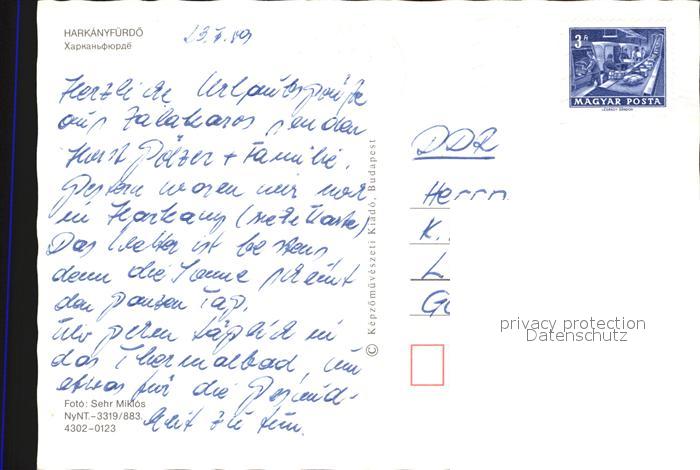 HARKÁNYFÜRDŐ
Харканьфюрдё
3 Ft
MAGYAR POSTA
LÉGRÁDY SÁNDOR
Herzliche Urlaubsgrüße
aus Zalakaros senden
Horst Pötzer + Familie.
Gestern waren wir mal
in Harkany (siehe Karte)
Das Wetter ist bestens
denn die Sonne scheint
den ganzen Tag.
Wir gehen täglich in
das Thermalbad, um
etwas für die Gesund-
heit zu tun.
DDR
Herrn
K.
L
G
© Képzőművészeti Kiadó, Budapest
privacy protection
Datenschutz
Fotó: Sehr Miklós
NyNT.-3319/883
4302-0123